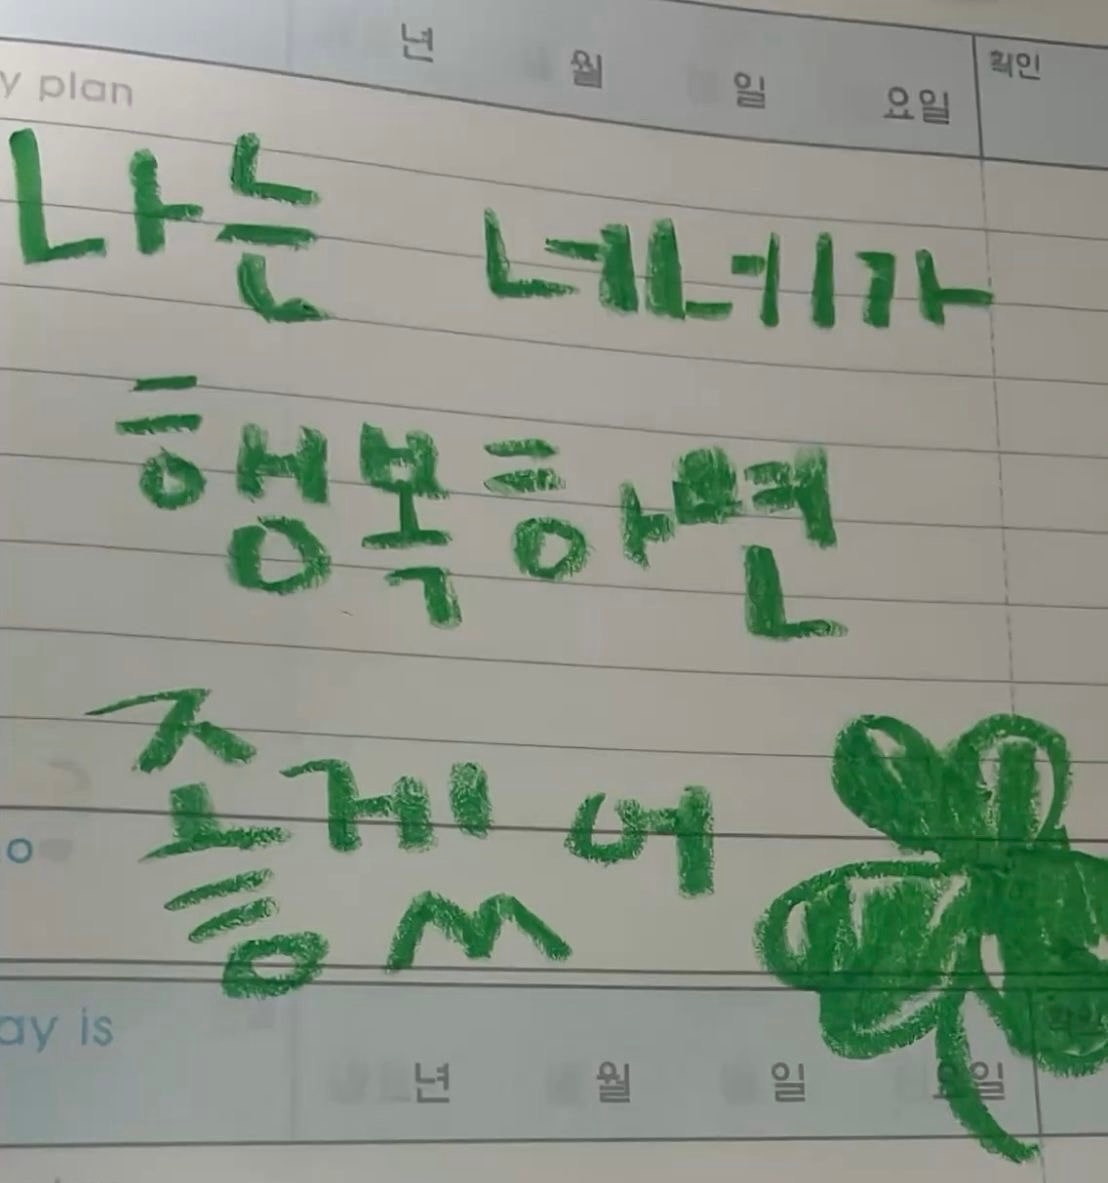 년 월 일 요일 확인
y plan
나는 네네가
행복하면
좋겠어
o
ay is 년 월 일 요일